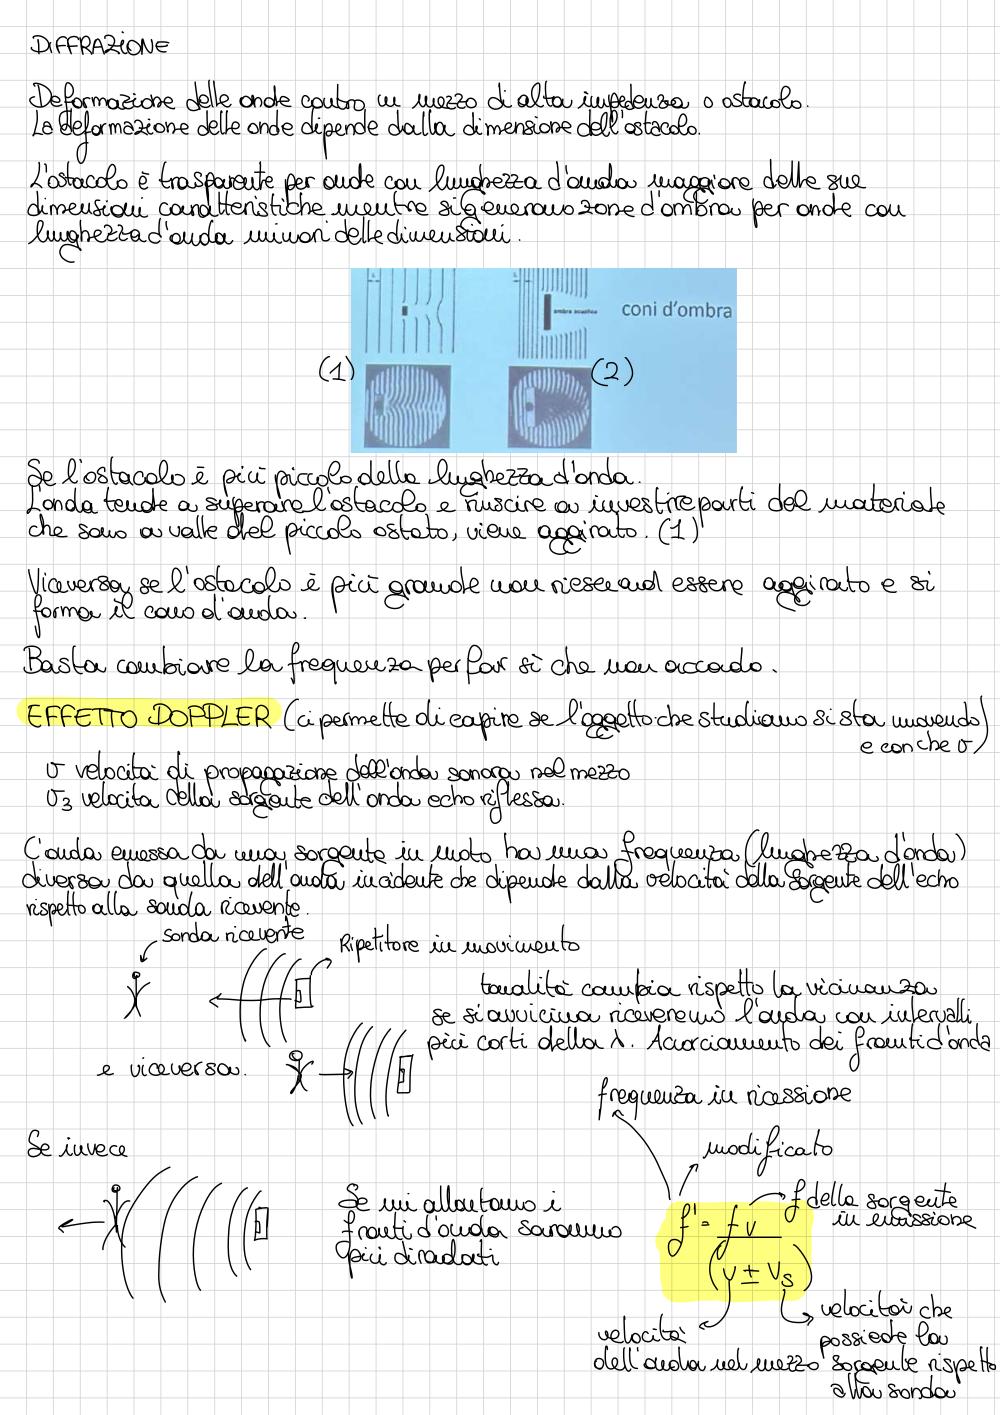 DIFFRAZIONE
Deformazione delle onde contro un mezzo di alta impedenza o ostacolo.
La deformazione delle onde dipende dalla dimensione dell'ostacolo.
L'ostacolo è trasparente per onde con lunghezza d'onda maggiore delle sue
dimensioni caratteristiche mentre si generano zone d'ombra per onde con
lunghezza d'onda minori delle dimensioni.
ombra acustica
coni d'ombra
(1) (2)
Se l'ostacolo è più piccolo della lunghezza d'onda.
L'onda tende a superare l'ostacolo e riuscire a investire parti del materiale
che sono a valle del piccolo ostato, viene aggirato. (1)
Viceversa, se l'ostacolo è più grande non riesce ad essere aggirato e si
forma il cono d'onda.
Basta cambiare la frequenza per far sì che non accada.
EFFETTO DOPPLER (ci permette di capire se l'oggetto che studiamo si sta muovendo
e con che v)
v velocità di propagazione dell'onda sonora nel mezzo
v3 velocita della sorgente dell'onda echo riflessa.
L'onda emessa da una sorgente in moto ha una frequenza (lunghezza d'onda)
diversa da quella dell'onda incidente che dipende dalla velocità dalla sorgente dell'echo
rispetto alla sonda ricevente.
sonda ricevente
Ripetitore in movimento
tonalità cambia rispetto la vicinanza
se si avvicina riceveremo l'onda con intervalli
più corti della λ. Accorciamento dei fronti d'onda
e viceversa.
frequenza in ricessione
modificato
Se invece
Se mi allontano i
fronti d'onda saranno
più diradati
f della sorgente
in emissione
f' = f v
(v ± vs)
velocità
dell'onda nel mezzo
velocità che
possiede la
sorgente rispetto
alla sonda